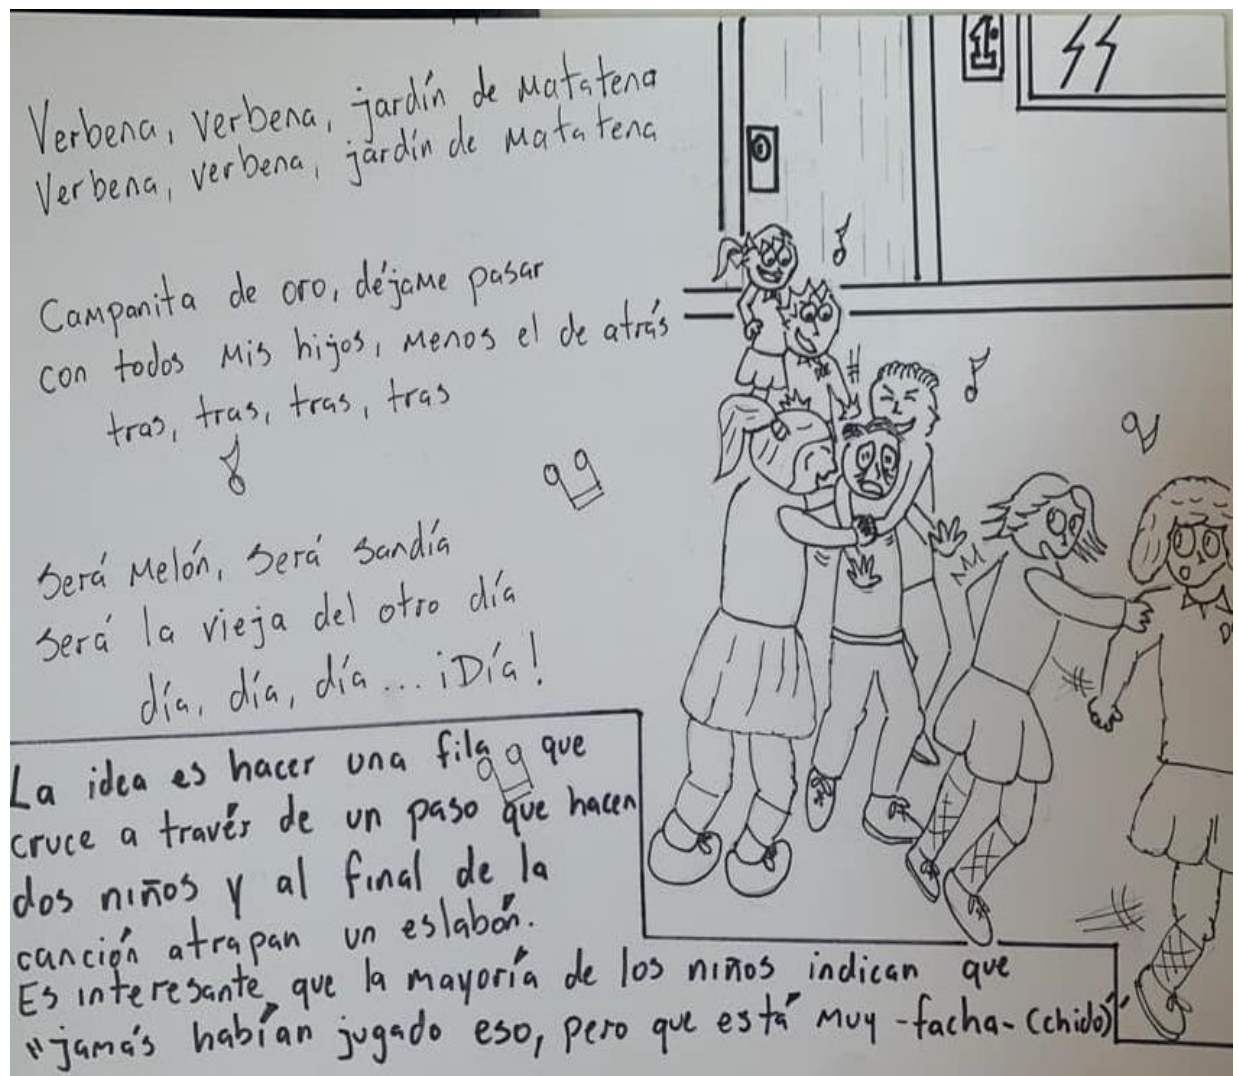 Verbena, verbena, jardín de Matatena
Verbena, verbena, jardín de Matatena
Campanita de oro, déjame pasar
con todos mis hijos, menos el de atrás
tras, tras, tras, tras
Será melón, será sandía
Será la vieja del otro día
día, día, día... ¡Día!
La idea es hacer una fila que
cruce a través de un paso que hacen
dos niños y al final de la
canción atrapan un eslabón.
Es interesante que la mayoría de los niños indican que
"jamás habían jugado eso, pero que está muy -facha- (chido)"